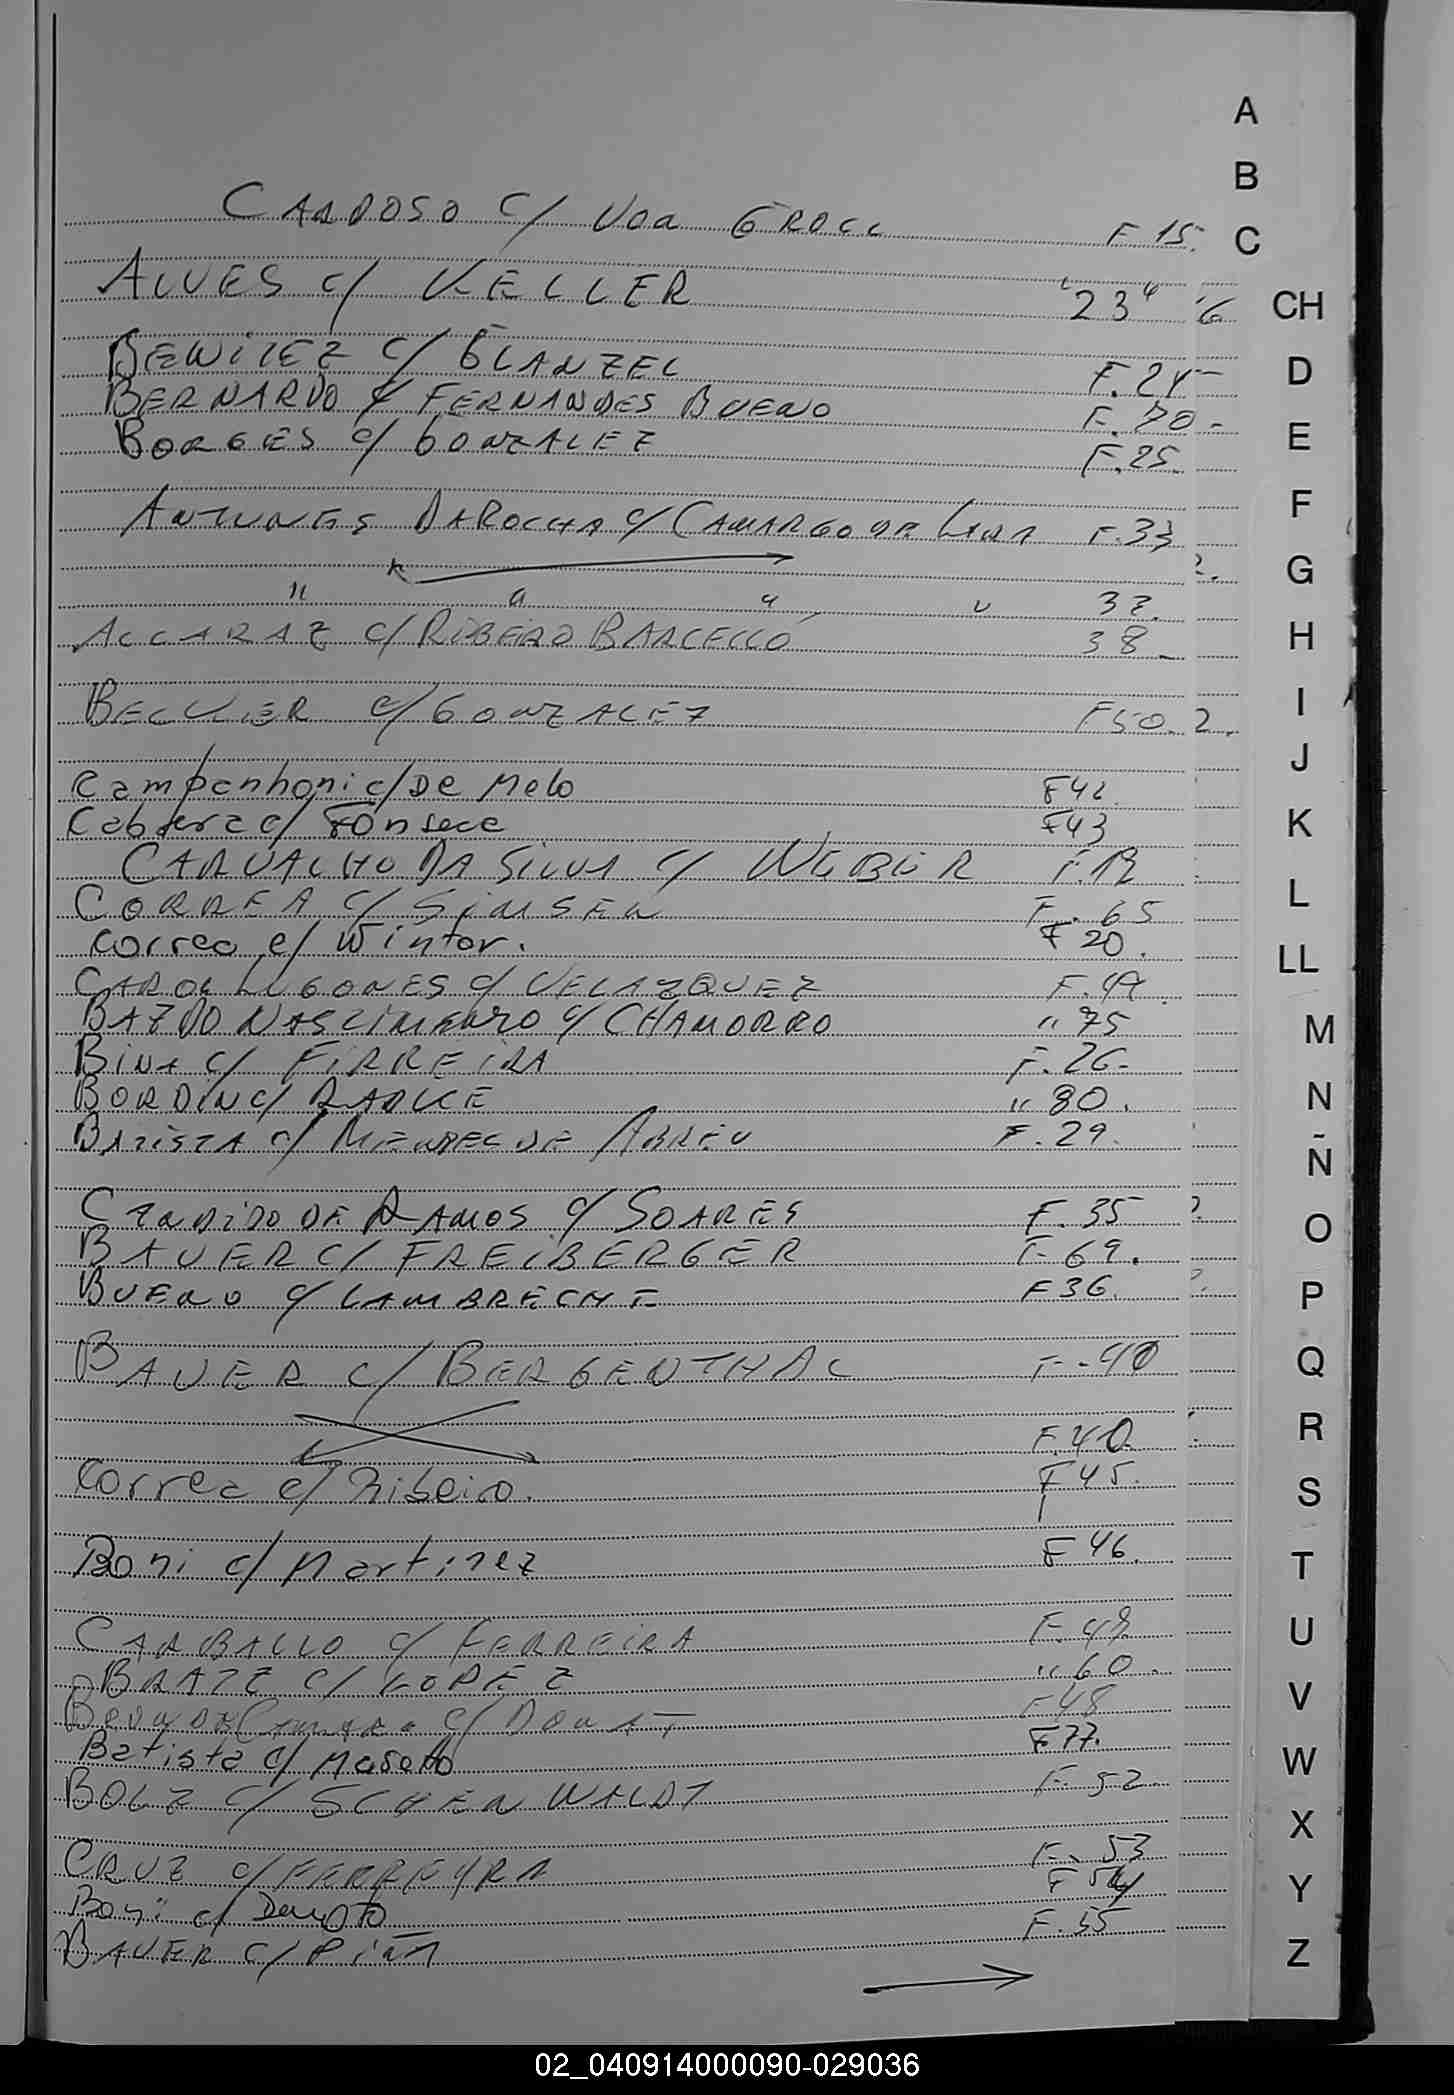 A
B
CARDOSO c/ VDA GROLL F 15. C
ALVES c/ KELLER "23" 6 CH
BENITEZ c/ GLANZEL F. 24 D
BERNARDO c/ FERNANDES BUENO F. 70 -
BORGES c/ GONZALEZ F. 25. E
ANTUNES DA ROCHA c/ CAMARGO DE LARA F. 33 F
G
" " " " 37.
ALCARAZ c/ RIBEIRO BARCELLO 38 - H
BECKER c/ GONZALEZ F 50. 2. I
J
Campanhoni c/ De Melo F 42.
Cabrera c/ Fonseca F 43 K
CARVALHO DA SILVA c/ WEBER F. 13
CORREA c/ SIMSEN F. 65 L
Correa c/ Winter. F 20. LL
CAROL LUGONES c/ VELAZQUEZ F. 49.
BAZ DO NASCIMENTO c/ CHAMORRO " 75 M
BINA c/ FIRREIRA F. 26-
BORDIN c/ RADKE " 80. N
BATISTA c/ MENDES DE ABREU F. 29. Ñ
CANDIDO DE RAMOS c/ SOARES F. 35 O
BAUER c/ FREIBERGER F 69.
BUENO c/ LAMBRECHT F 36. P
BAUER c/ BERGENTHAL F. 40 Q
F. 40. R
Correa c/ Ribeiro. F 45. S
Boni c/ Martinez F 46. T
CARBALLO c/ FERREIRA F. 47 U
BRATZ c/ LOPEZ " 60.
c/ F 48 V
Batista c/ Masetto F 77.
BOLZ c/ SCHENWALDT F. 52. W
X
CRUZ c/ FERREYRA F. 53
Boni c/ Devoto F 54 Y
BAUER c/ F. 55
Z
02_040914000090-029036